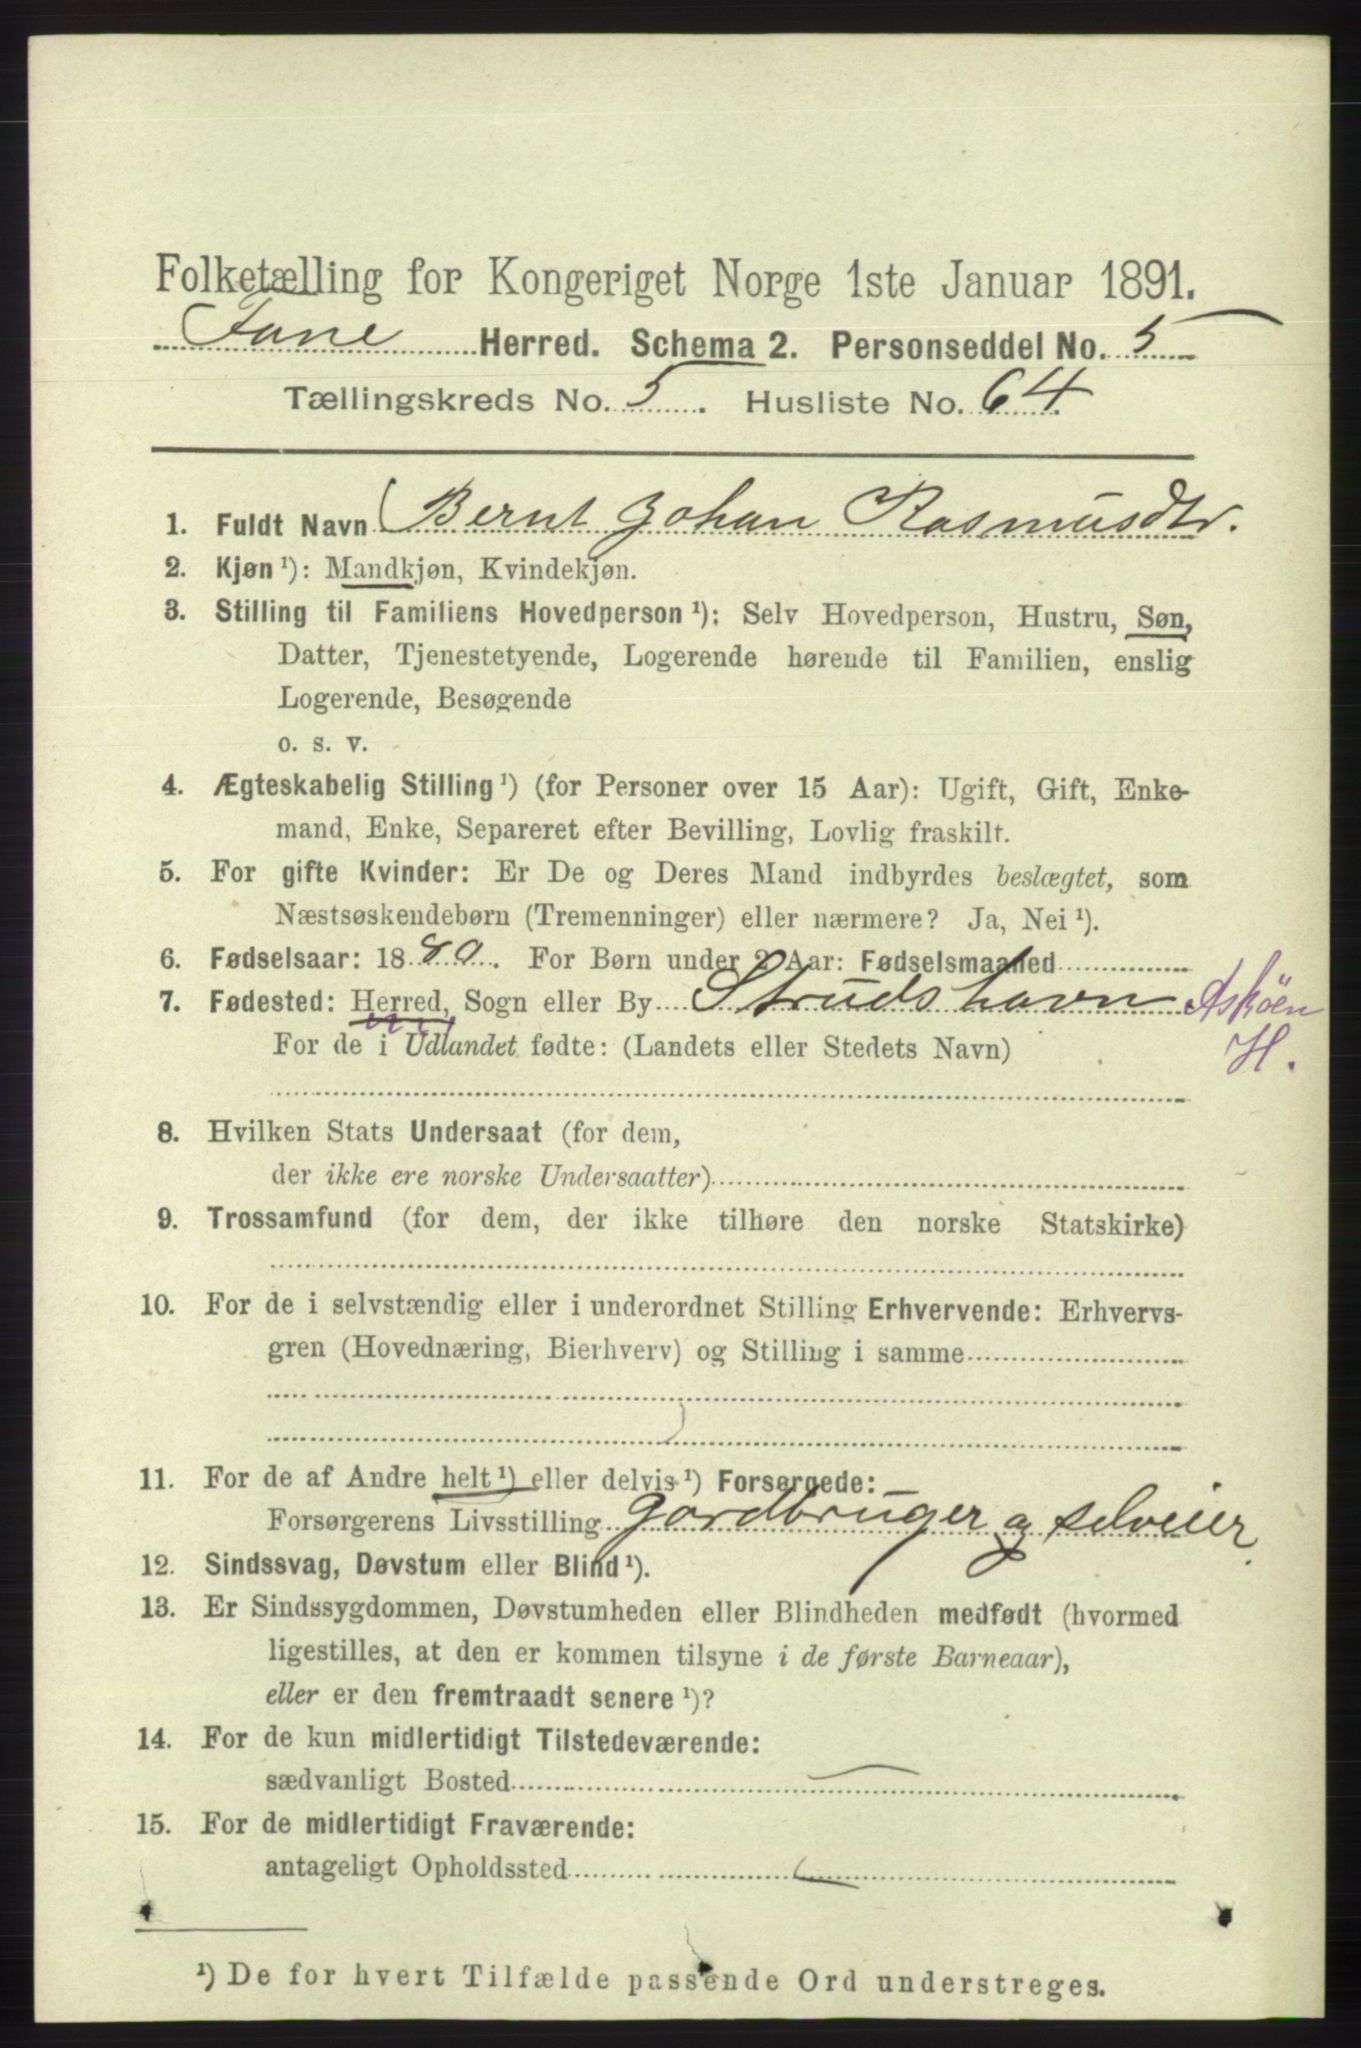 Folketælling for Kongeriget Norge 1ste Januar 1891.
Fane Herred. Schema 2. Personseddel No. 5
Tællingskreds No. 5. Husliste No. 64.
1. Fuldt Navn Bernt Johan Rasmusdtr.
2. Kjøn ¹): Mandkjøn, Kvindekjøn.
3. Stilling til Familiens Hovedperson ¹): Selv Hovedperson, Hustru, Søn,
Datter, Tjenestetyende, Logerende hørende til Familien, enslig
Logerende, Besøgende
o. s. v.
4. Ægteskabelig Stilling ¹) (for Personer over 15 Aar): Ugift, Gift, Enke-
mand, Enke, Separeret efter Bevilling, Lovlig fraskilt.
5. For gifte Kvinder: Er De og Deres Mand indbyrdes beslægtet, som
Næstsøskendebørn (Tremenninger) eller nærmere? Ja, Nei ¹).
6. Fødselsaar: 1880. For Børn under 2 Aar: Fødselsmaaned
7. Fødested: Herred, Sogn eller By Strudshavn Askøen
H.
For de i Udlandet fødte: (Landets eller Stedets Navn)
8. Hvilken Stats Undersaat (for dem,
der ikke ere norske Undersaatter)
9. Trossamfund (for dem, der ikke tilhøre den norske Statskirke)
10. For de i selvstændig eller i underordnet Stilling Erhvervende: Erhvervs-
gren (Hovednæring, Bierhverv) og Stilling i samme
11. For de af Andre helt ¹) eller delvis ¹) Forsørgede:
Forsørgerens Livsstilling Gardbruger og selveier.
12. Sindssvag, Døvstum eller Blind ¹).
13. Er Sindssygdommen, Døvstumheden eller Blindheden medfødt (hvormed
ligestilles, at den er kommen tilsyne i de første Barneaar),
eller er den fremtraadt senere ¹)?
14. For de kun midlertidigt Tilstedeværende:
sædvanligt Bosted
15. For de midlertidigt Fraværende:
antageligt Opholdssted
¹) De for hvert Tilfælde passende Ord understreges.